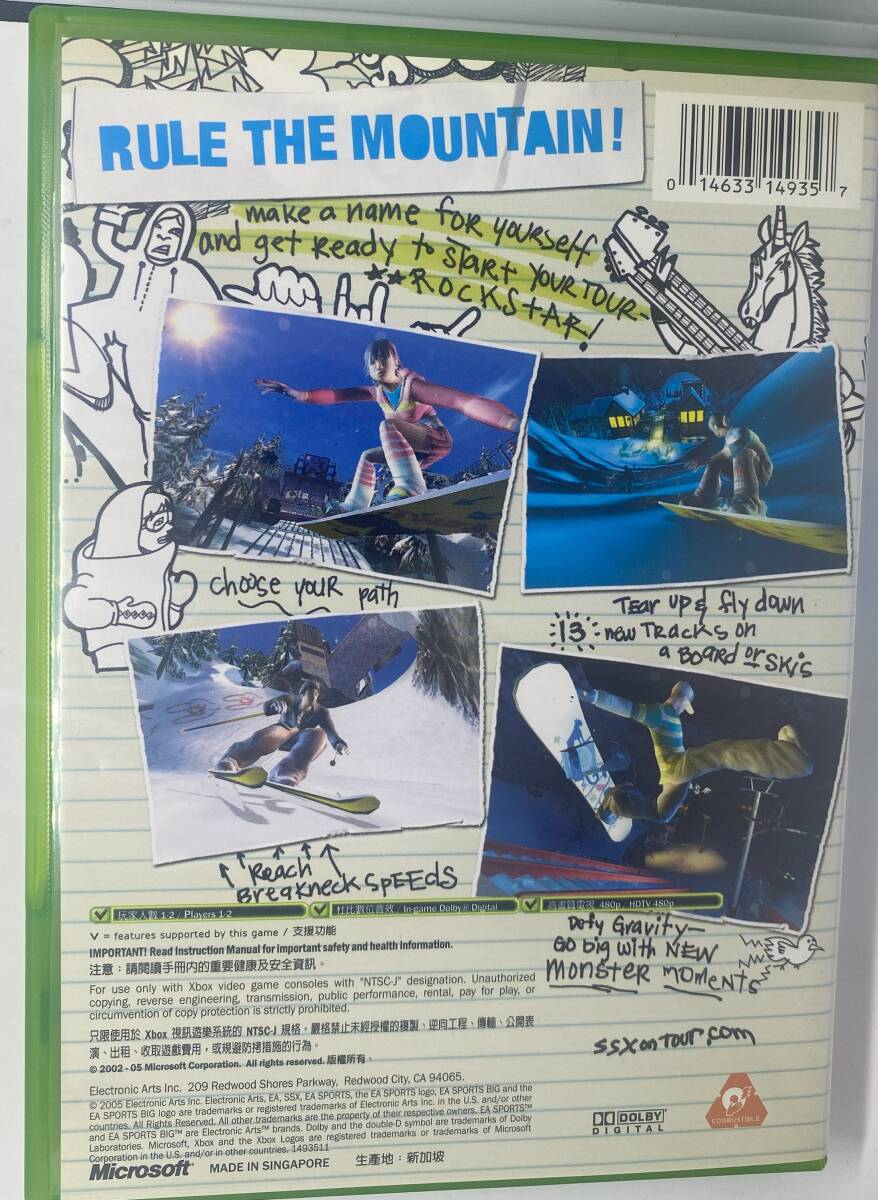 RULE THE MOUNTAIN!
0 14633 14935 7
make a name for yourself
and get ready to start your tour-
★★ROCKSTAR!
choose your path
Tear up & fly down
13 new Tracks on
a Board or Skis
Reach
Breakneck Speeds
玩家人數 1-2 / Players 1-2
杜比數位音效 / In-game Dolby® Digital
高畫質電視 480p / HDTV 480p
Defy Gravity—
Go big with NEW
Monster Moments
V = features supported by this game / 支援功能
IMPORTANT! Read Instruction Manual for important safety and health information.
注意：請閱讀手冊內的重要健康及安全資訊。
For use only with Xbox video game consoles with "NTSC-J" designation. Unauthorized
copying, reverse engineering, transmission, public performance, rental, pay for play, or
circumvention of copy protection is strictly prohibited.
只限使用於 Xbox 視訊遊樂系統的 NTSC-J 規格。嚴格禁止未經授權的複製、逆向工程、傳輸、公開表
演、出租、收取遊戲費用，或規避防拷措施的行為。
© 2002 - 05 Microsoft Corporation. All rights reserved. 版權所有。
ssxontour.com
Electronic Arts Inc. 209 Redwood Shores Parkway, Redwood City, CA 94065.
© 2005 Electronic Arts Inc. Electronic Arts, EA, SSX, EA SPORTS, the EA SPORTS logo, EA SPORTS BIG and the
EA SPORTS BIG logo are trademarks or registered trademarks of Electronic Arts Inc. in the U.S. and/or other
countries. All Rights Reserved. All other trademarks are the property of their respective owners. EA SPORTS™
and EA SPORTS BIG™ are Electronic Arts™ brands. Dolby and the double-D symbol are trademarks of Dolby
Laboratories. Microsoft, Xbox and the Xbox Logos are registered trademarks or trademarks of Microsoft
Corporation in the U.S. and/or in other countries. 1493511
DOLBY
DIGITAL
COMBUSTIBLE
Microsoft® MADE IN SINGAPORE 生產地：新加坡